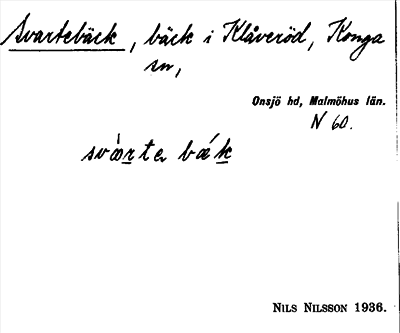 Svartebäck, bäck i Klåveröd, Konga
sn,
Onsjö hd, Malmöhus län.
N 60.
svàrte bǽk
NILS NILSSON 1936.